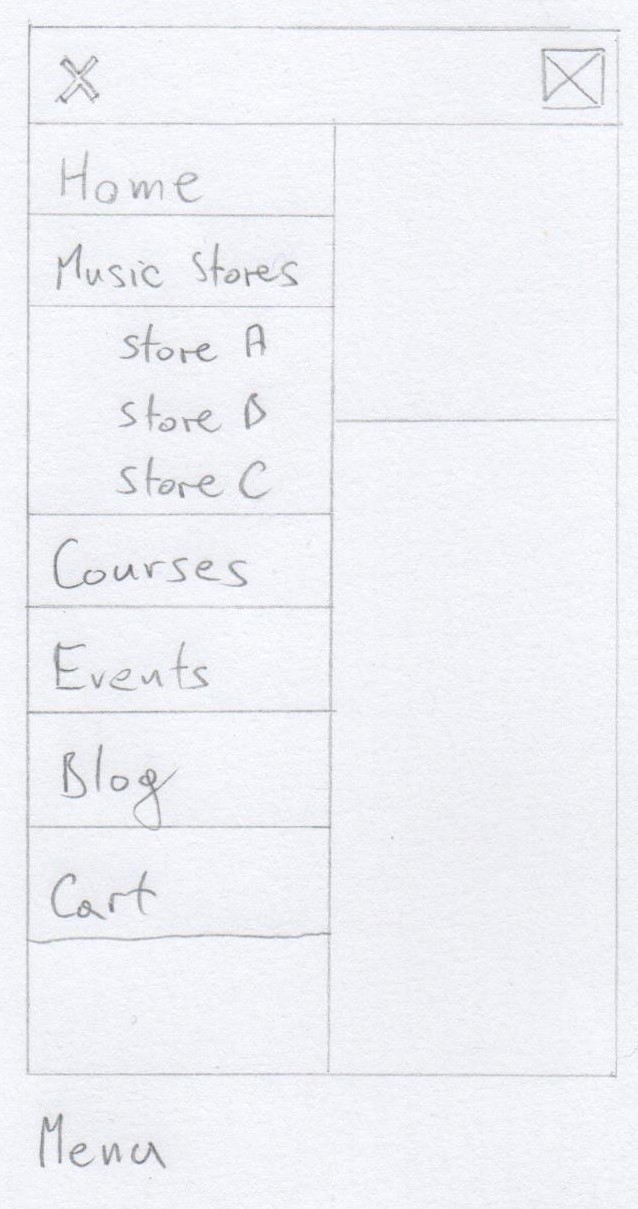 Home
Music Stores
Store A
Store B
Store C
Courses
Events
Blog
Cart
Menu